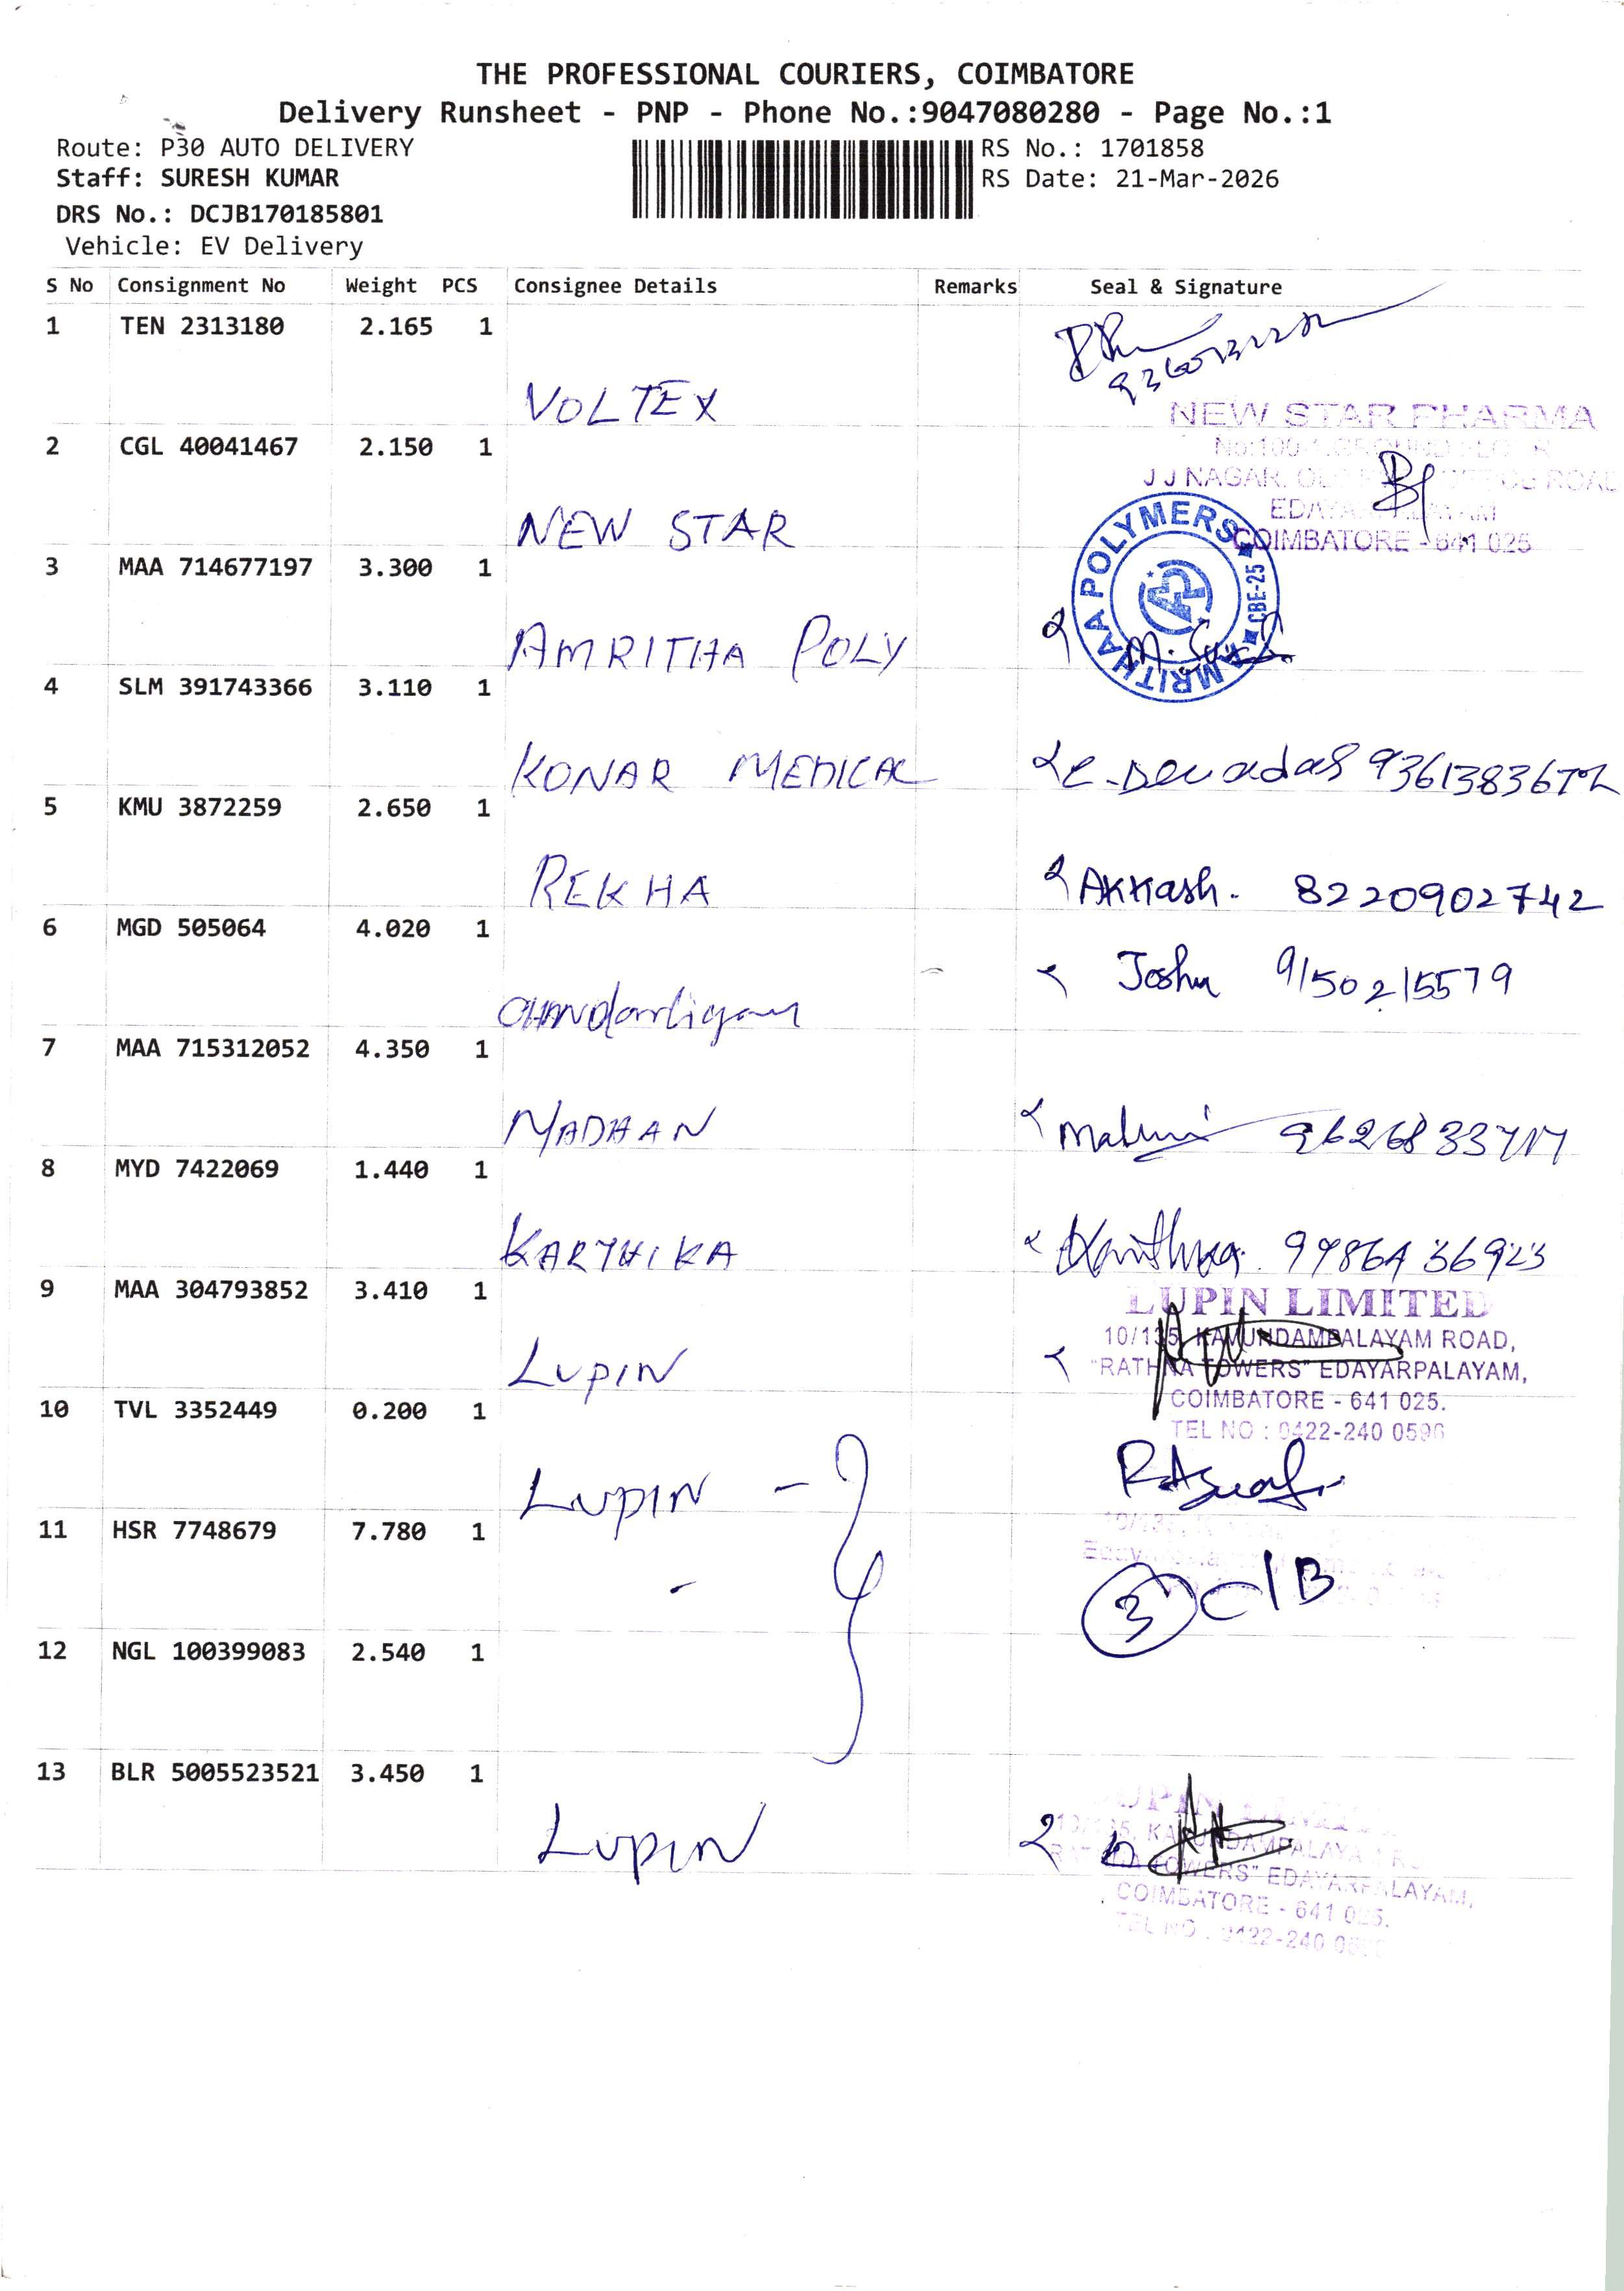 THE PROFESSIONAL COURIERS, COIMBATORE
Delivery Runsheet - PNP - Phone No.:9047080280 - Page No.:1
Route: P30 AUTO DELIVERY
Staff: SURESH KUMAR
DRS No.: DCJB170185801
Vehicle: EV Delivery
RS No.: 1701858
RS Date: 21-Mar-2026
S No Consignment No Weight PCS Consignee Details Remarks Seal & Signature
1 TEN 2313180 2.165 1
VOLTEX
NEW STAR PHARMA
2 CGL 40041467 2.150 1
J J NAGAR,
COIMBATORE - 641 025
NEW STAR
AMRITHAA POLYMERS CBE-25
3 MAA 714677197 3.300 1
AMRITHA POLY
4 SLM 391743366 3.110 1
KONAR MEDICAL
5 KMU 3872259 2.650 1
REKHA AKKash. 8220902742
6 MGD 505064 4.020 1
Joshu 9150215579
7 MAA 715312052 4.350 1
MADHAN
8 MYD 7422069 1.440 1
KARTHIKA
9 MAA 304793852 3.410 1
LUPIN LIMITED
10/135, KAVUNDAMPALAYAM ROAD,
"RATHNA TOWERS" EDAYARPALAYAM,
COIMBATORE - 641 025.
TEL NO : 0422-240 0596
LUPIN
10 TVL 3352449 0.200 1
LUPIN -
11 HSR 7748679 7.780 1
3 C/B
12 NGL 100399083 2.540 1
13 BLR 5005523521 3.450 1
LUPIN
TOWERS" EDAYARPALAYAM,
COIMBATORE - 641 025.